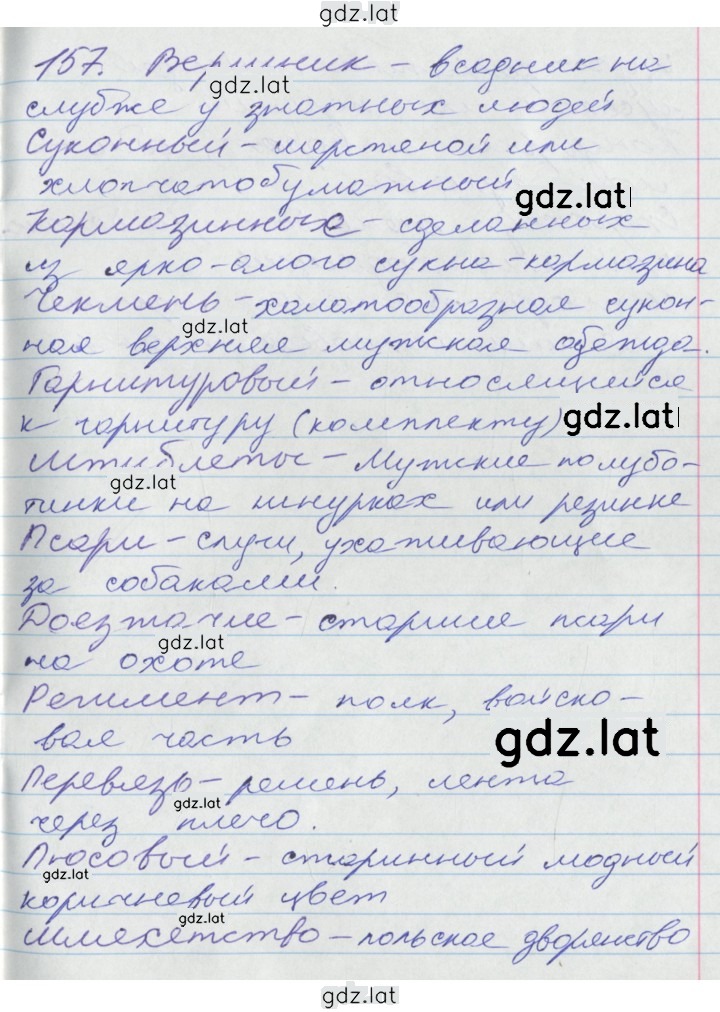 gdz.lat
157. Вершник – всадник на
gdz.lat
службе у знатных людей
Суконный – шерстяной или
хлопчатобумажный
gdz.lat
Кармазинных – сделанных
из ярко-алого сукна – кармазина
Чекмень – халатообразная сукон-
gdz.lat
ная верхняя мужская одежда.
Гарнитуровый – относящийся
к гарнитуру (комплекту)
gdz.lat
Штиблеты – Мужские полубо-
gdz.lat
тинки на шнурках или резинке
Псари – слуги, ухаживающие
за собаками.
Доезжачие – старшие псари
gdz.lat
на охоте
Регимент – полк, войско-
вая часть
gdz.lat
Перевязь – ремень, лента
gdz.lat
через плечо.
Пюсовый – старинный модный
gdz.lat
коричневый цвет
gdz.lat
Шляхетство – польское дворянство
gdz.lat